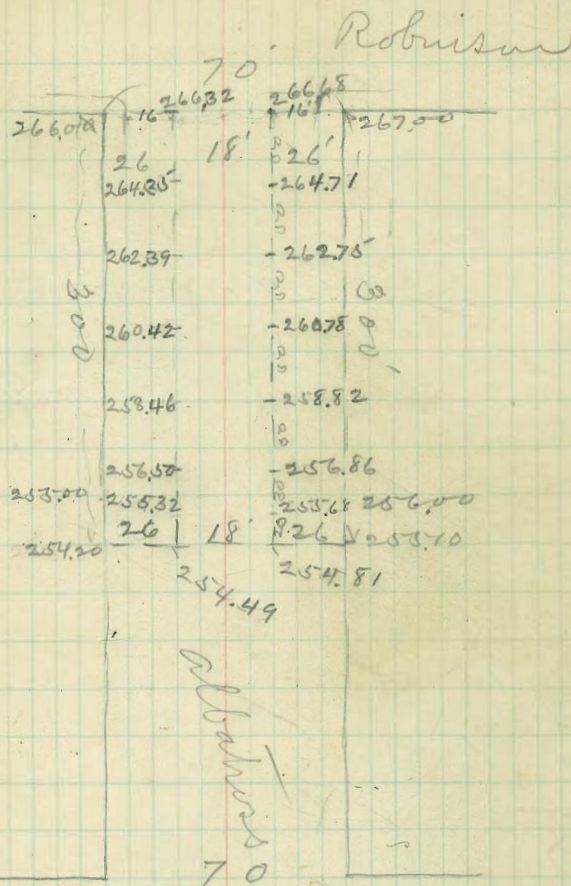 Robinson
70'
266.32 266.68
266.00 16 16 267.00
26 18' 26'
264.35 264.71
262.39 262.75
300' 300'
260.42 260.78
258.46 258.82
256.50 256.86
255.00 255.32 255.68 256.00
254.20 26 18' 26 255.10
254.49 254.81
Albatross
70